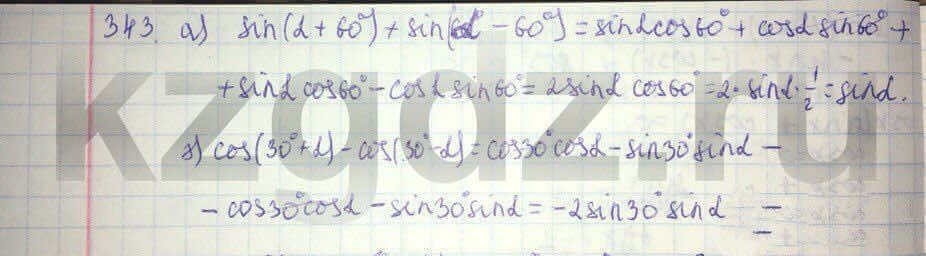 343. а) sin(α + 60°) + sin(α - 60°) = sinα cos60° + cosα sin60° +
+ sinα cos60° - cosα sin60° = 2sinα cos60° = 2 · sinα · 1/2 = sinα.
cos(30° + α) - cos(30° - α) = cos30° cosα - sin30° sinα -
- cos30° cosα - sin30° sinα = -2sin30° sinα
kzgdz.ru